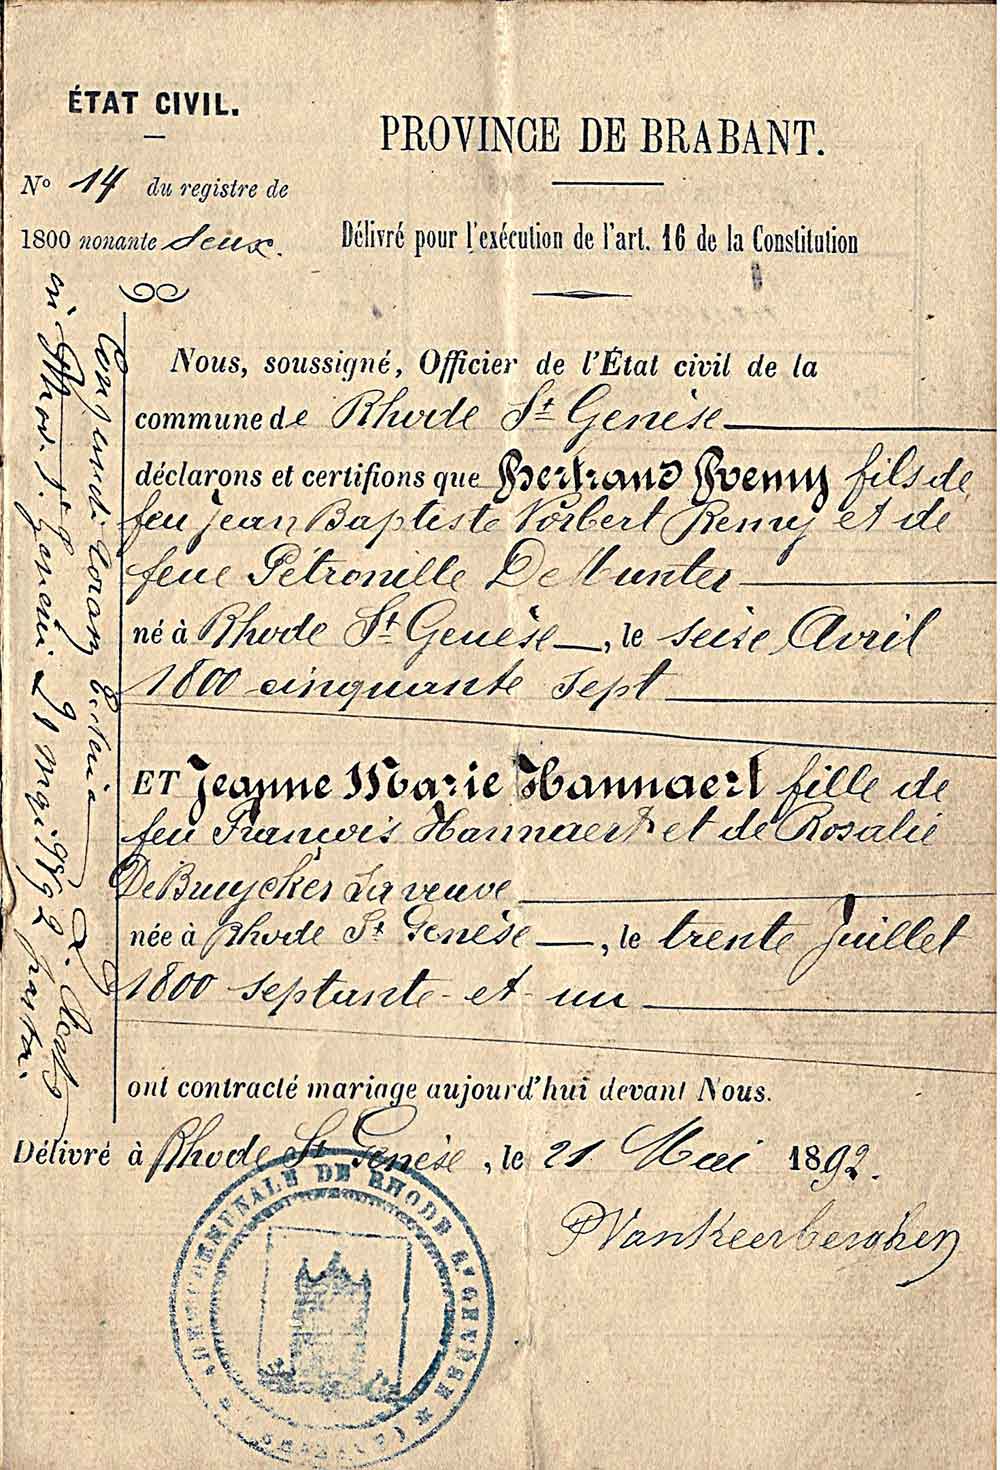 ÉTAT CIVIL.
N° 14 du registre de
1800 nonante deux.
PROVINCE DE BRABANT.
Délivré pour l'exécution de l'art. 16 de la Constitution
Nous, soussigné, Officier de l'État civil de la
commune de Rhode St Genèse
déclarons et certifions que Bertrand Remy fils de
feu Jean Baptiste Norbert Remy et de
feue Pétronille DeMunter
né à Rhode St Genèse, le seize Avril
1800 cinquante sept
ET Jeanne Marie Hannaert fille de
feu François Hannaert et de Rosalie
DeBruycker sa veuve
née à Rhode St Genèse, le trente Juillet
1800 septante-et-un
ont contracté mariage aujourd'hui devant Nous.
Délivré à Rhode St Genèse, le 21 Mai 1892.
PVankeerberghen
Conjuncti coram
in Rhode St Genesii 21 Maii 1892
COMMUNALE DE RHODE St GENÈSE